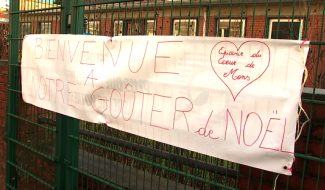 BIENVENUE
A
NOTRE GOÛTER de NOËL
Epicerie du
Coeur de
Mons